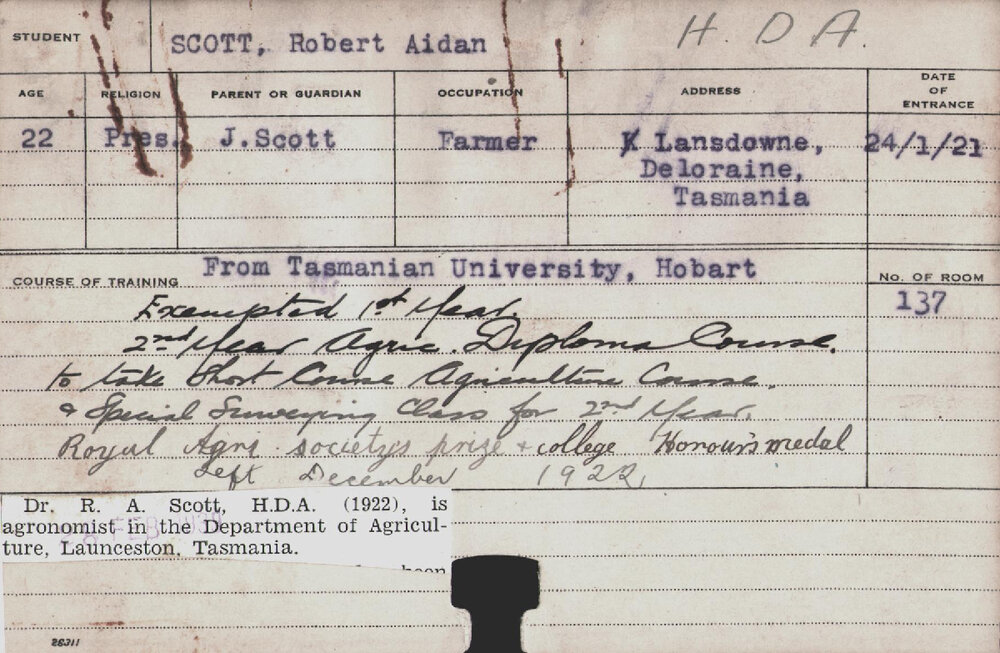 STUDENT
SCOTT, Robert Aidan
H. D A.
AGE
RELIGION
PARENT OR GUARDIAN
OCCUPATION
ADDRESS
DATE
OF
ENTRANCE
22
Pres.
J.Scott
Farmer
Lansdowne,
Deloraine,
Tasmania
24/1/21
COURSE OF TRAINING
From Tasmanian University, Hobart
No. OF ROOM
137
Exempted 1st Year.
2nd Year Agric. Diploma Course.
to take Short Course Agriculture Course.
& Special Surveying Class for 2nd Year.
Royal Agri society's prize + college Honour's medal
Left December 1922,
Dr. R. A. Scott, H.D.A. (1922), is
agronomist in the Department of Agricul-
ture, Launceston, Tasmania.
been
26311